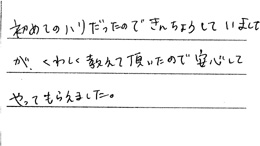 初めてのハリだったのできんちょうしていまして
が、くわしく教えて頂いたので安心して
やってもらえました。